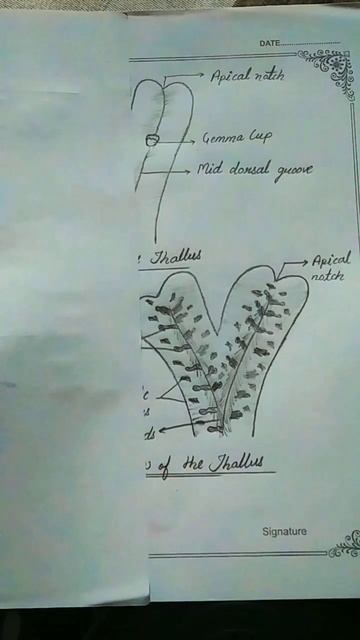 DATE
Apical notch
Gemma Cup
Mid dorsal groove
Thallus
Apical
notch
of the Thallus
Signature